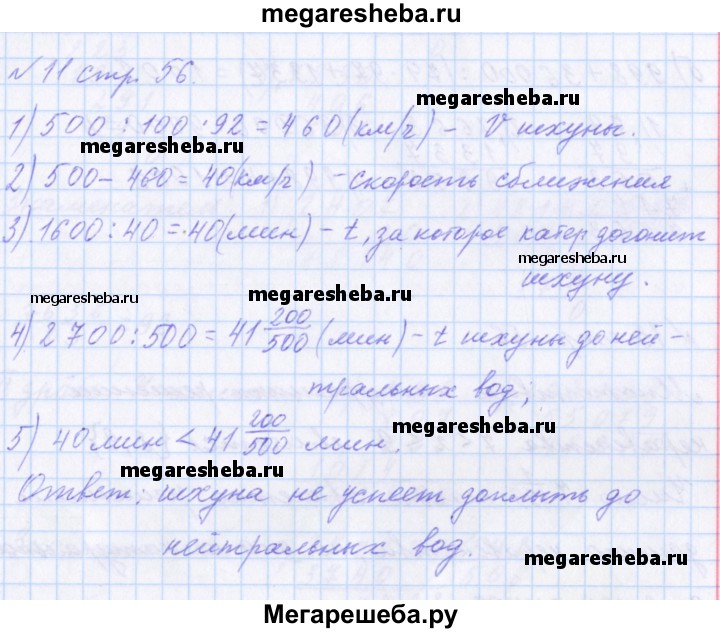 megaresheba.ru
№ 11 стр. 56.
1) 500 : 100 · 92 = 460 (км/ч) – V шхуны.
megaresheba.ru
megaresheba.ru
2) 500 – 460 = 40 (км/ч) – скорость сближения
3) 1600 : 40 = 40 (мин) – t, за которое катер догонит
megaresheba.ru
шхуну.
megaresheba.ru
megaresheba.ru
4) 2 700 : 500 = 41 200/500 (мин) – t шхуны до ней-
тральных вод;
5) 40 мин < 41 200/500 мин.
megaresheba.ru
megaresheba.ru
Ответ: шхуна не успеет доплыть до
нейтральных вод.
megaresheba.ru
Мегарешеба.ру